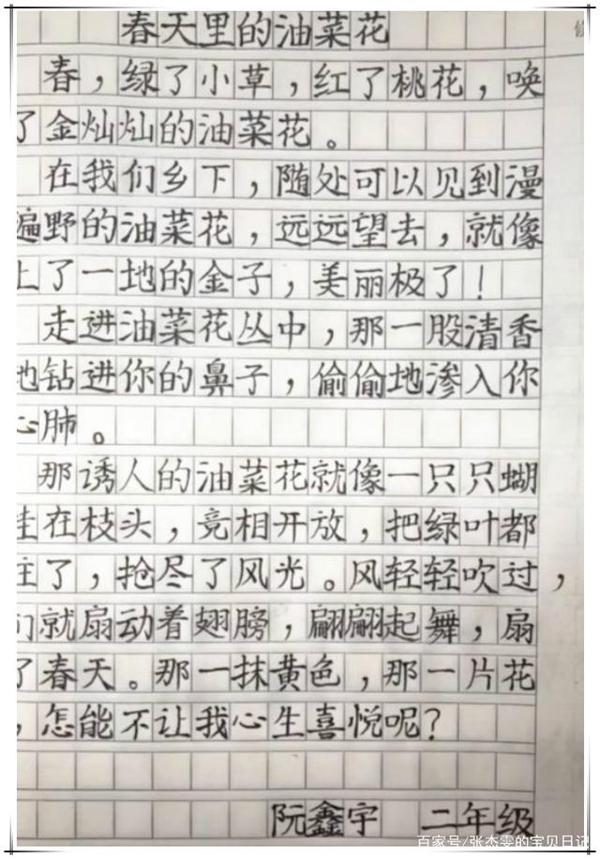 春天里的油菜花
春，绿了小草，红了桃花，唤
了金灿灿的油菜花。
在我们乡下，随处可以见到漫
遍野的油菜花，远远望去，就像
上了一地的金子，美丽极了！
走进油菜花丛中，那一股清香
地钻进你的鼻子，偷偷地渗入你
心肺。
那诱人的油菜花就像一只只蝴
挂在枝头，竞相开放，把绿叶都
住了，抢尽了风光。风轻轻吹过，
们就扇动着翅膀，翩翩起舞，扇
了春天。那一抹黄色，那一片花
，怎能不让我心生喜悦呢？
阮鑫宇 二年级
百家号/张杰雯的宝贝日记